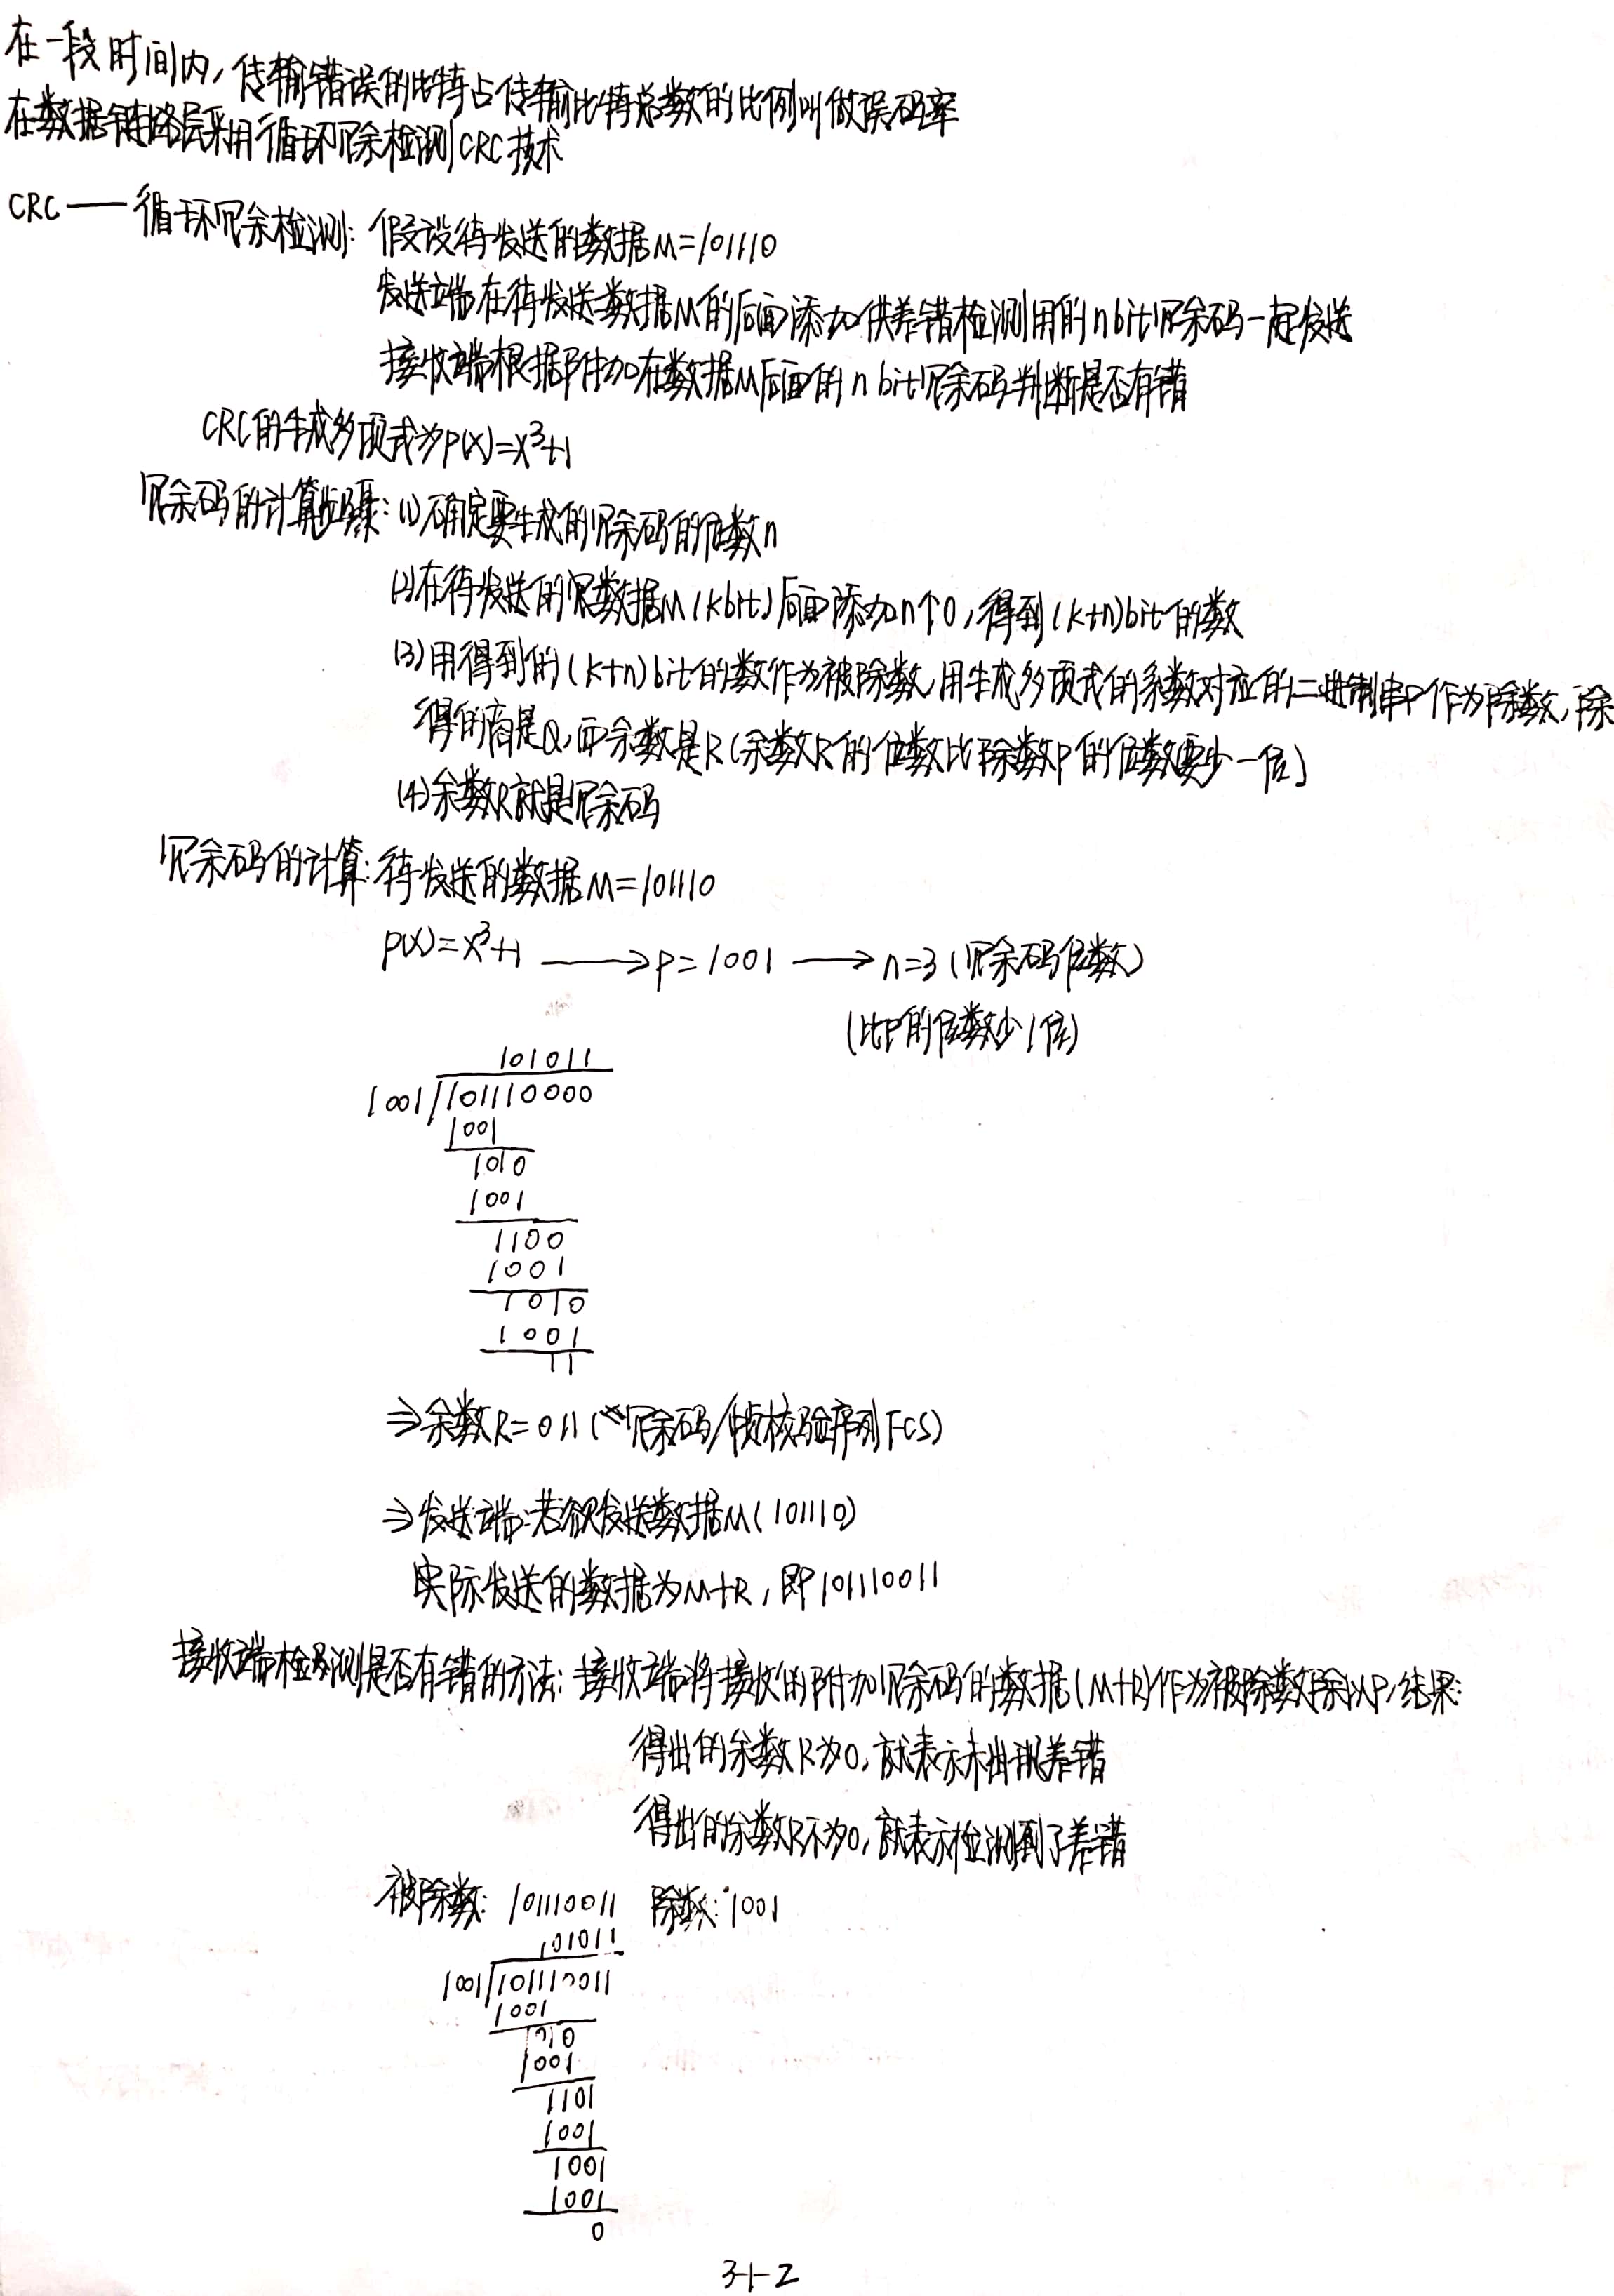 在一段时间内,传输错误的比特占传输比特总数的比例叫做误码率
在数据链路层采用循环冗余检测CRC技术
CRC——循环冗余检测:假设待发送的数据M=101110
发送端在待发送数据M的后面添加供差错检测用的n bit冗余码一起发送
接收端根据附加在数据M后面的n bit冗余码判断是否有错
CRC的生成多项式为P(X)=X³+1
冗余码的计算步骤:(1)确定要生成的冗余码的位数n
(2)在待发送的数据M(kbit)后面添加n个0,得到(k+n)bit的数
(3)用得到的(k+n)bit的数作为被除数,用生成多项式的系数对应的二进制串P作为除数,除
得的商是Q,而余数是R(余数R的位数比除数P的位数要少一位)
(4)余数R就是冗余码
冗余码的计算:待发送的数据M=101110
P(X)=X³+1 ⟶ P=1001 ⟶ n=3(冗余码位数)
(比P的位数少1位)
101011
1001/101110000
1001
1010
1001
1100
1001
1010
1001
11
⇒余数R=011(冗余码/帧校验序列FCS)
⇒发送端:若欲发送数据M(101110)
实际发送的数据为M+R,即101110011
接收端检测是否有错的方法:接收端将接收的附加冗余码的数据(M+R)作为被除数除以P,结果:
得出的余数R为0,就表示未出现差错
得出的余数R不为0,就表示检测到了差错
被除数:101110011 除数:1001
101011
1001/101110011
1001
1010
1001
1101
1001
1001
1001
0
3-1-2